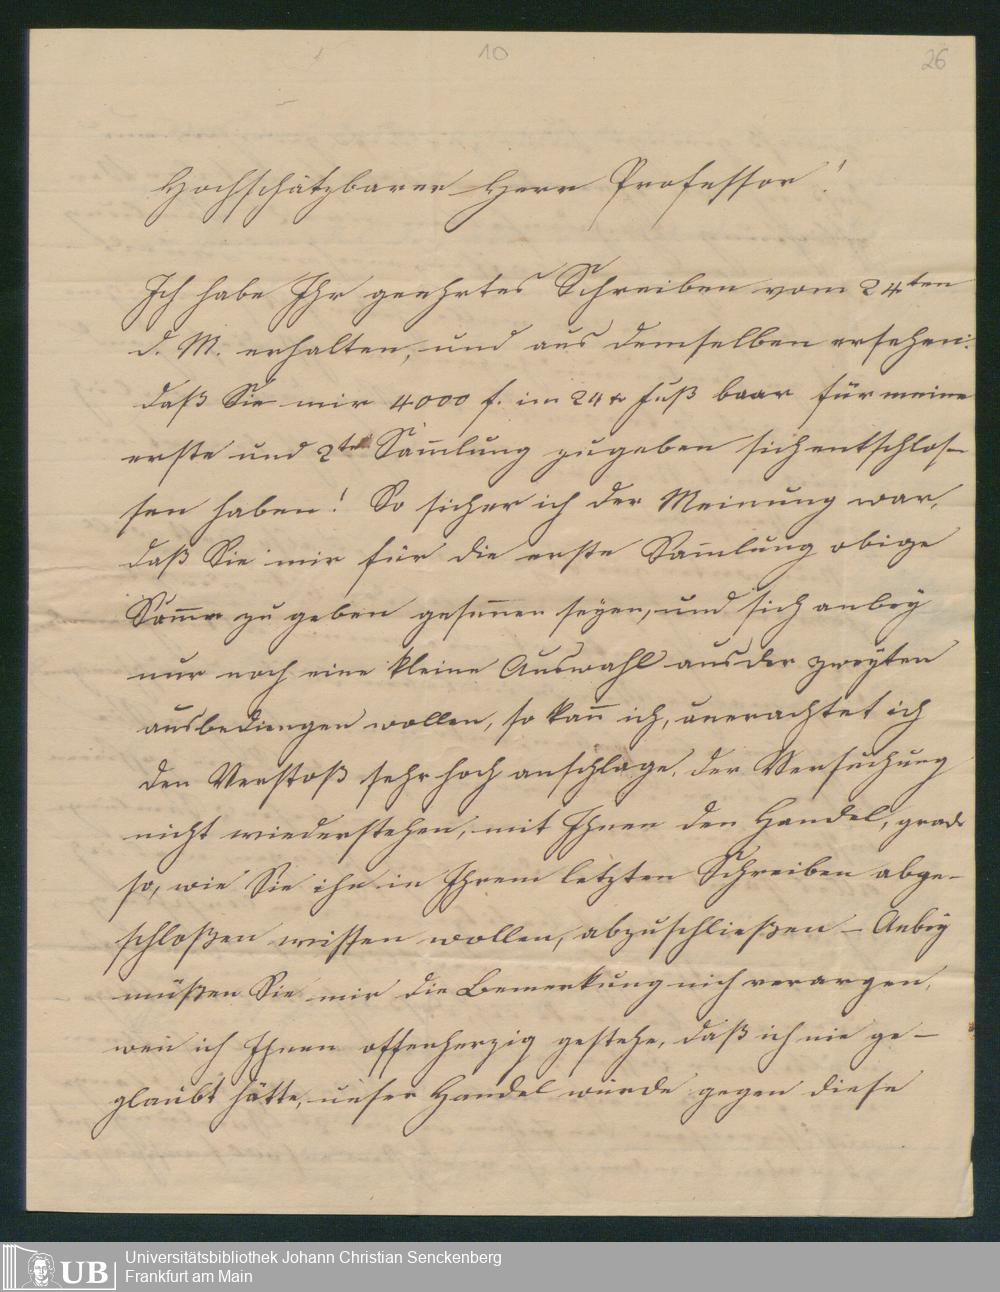 10
26
Hochschätzbarer Herr Professor!
Ich habe Ihr geehrtes Schreiben vom 24ten
d. M. erhalten, und aus demselben ersehen:
daß Sie mir 4000 f. im 24r Fuß baar für meine
erste und 2te Sam̄lung zugeben sich entschlos-
sen haben! So sicher ich der Meinung war,
daß Sie mir für die erste Sam̄lung obige
Som̄e zu geben gesonnen seyen, und sich anbey
nur noch eine kleine Auswahl aus der zweyten
ausbedingen wollen, so kan̄ ich, unerachtet ich
den Verstoß sehr hoch anschlage, der Versuchung
nicht wiederstehen, mit Ihnen den Handel, grade
so, wie Sie ihn in Ihrem letzten Schreiben abge-
schloßen wissen wollen, abzuschließen – Anbey
müßen Sie mir die Bemerkung nich verargen,
wen̄ ich Ihnen offenherzig gestehe, daß ich nie ge-
glaubt hätte, unser Handel würde gegen diese
UB
Universitätsbibliothek Johann Christian Senckenberg
Frankfurt am Main